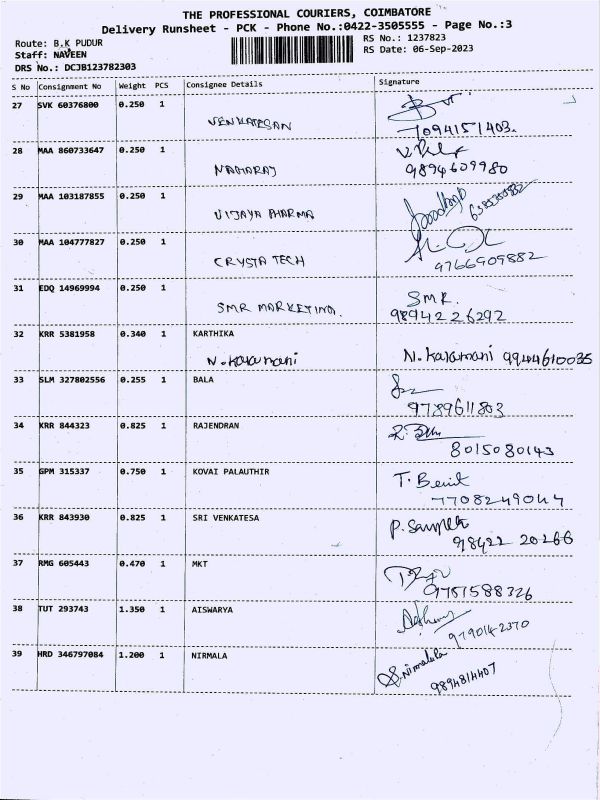 THE PROFESSIONAL COURIERS, COIMBATORE
Delivery Runsheet - PCK - Phone No.:0422-3505555 - Page No.:3
Route: B.K PUDUR
RS No.: 1237823
Staff: NAVEEN
RS Date: 06-Sep-2023
DRS No.: DCJB123782303
S No Consignment No Weight PCS Consignee Details Signature
27 SVK 60376800 0.250 1
VENKATESAN 7094151403.
28 MAA 860733647 0.250 1
NAGARAJ 9894609980
29 MAA 103187855 0.250 1
VIJAYA PHARMA
30 MAA 104777827 0.250 1
CRYSTA TECH 9766909882
31 EDQ 14969994 0.250 1 SMR.
SMR MARKETING. 9894226292
32 KRR 5381958 0.340 1 KARTHIKA
N. Kalamani N. Kalamani 9944610035
33 SLM 327802556 0.255 1 BALA
9789611803
34 KRR 844323 0.825 1 RAJENDRAN
8015080143
35 GPM 315337 0.750 1 KOVAI PALAUTHIR T.
7708249044
36 KRR 843930 0.825 1 SRI VENKATESA P.
98422 20266
37 RMG 605443 0.470 1 MKT
9787588326
38 TUT 293743 1.350 1 AISWARYA
979014-2370
39 HRD 346797084 1.200 1 NIRMALA S. Nirmalala
9894814407